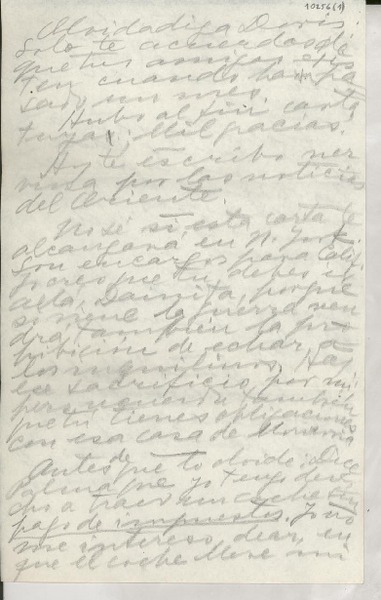 10256(1)
Olvidadiza Doris:
Solo te acuerdas de
que tus amigos exis
ten cuando han pa
sado un mes.
Hubo al fin carta
tuya. Mil gracias.
Hoy te escribo ner
viosa por las noticias
del Oriente.
No sé si esta carta te
alcanzará en N. York.
Son encargos para Calif.
Yo creo que tú debes ir
allá, Danita, porque
si viene la guerra ven
drá también la pro
hibición de echar a
los inquilinos. Haz
ese sacrificio por mí
pero recuerda también
que tú tienes obligaciones
con esa casa de Monrovia
Antes de que lo olvide: Dice
Palma que yo tengo dere
cho a traer un coche sin
pago de impuestos. Yo no
me intereso, dear, en
que el coche lleve mi